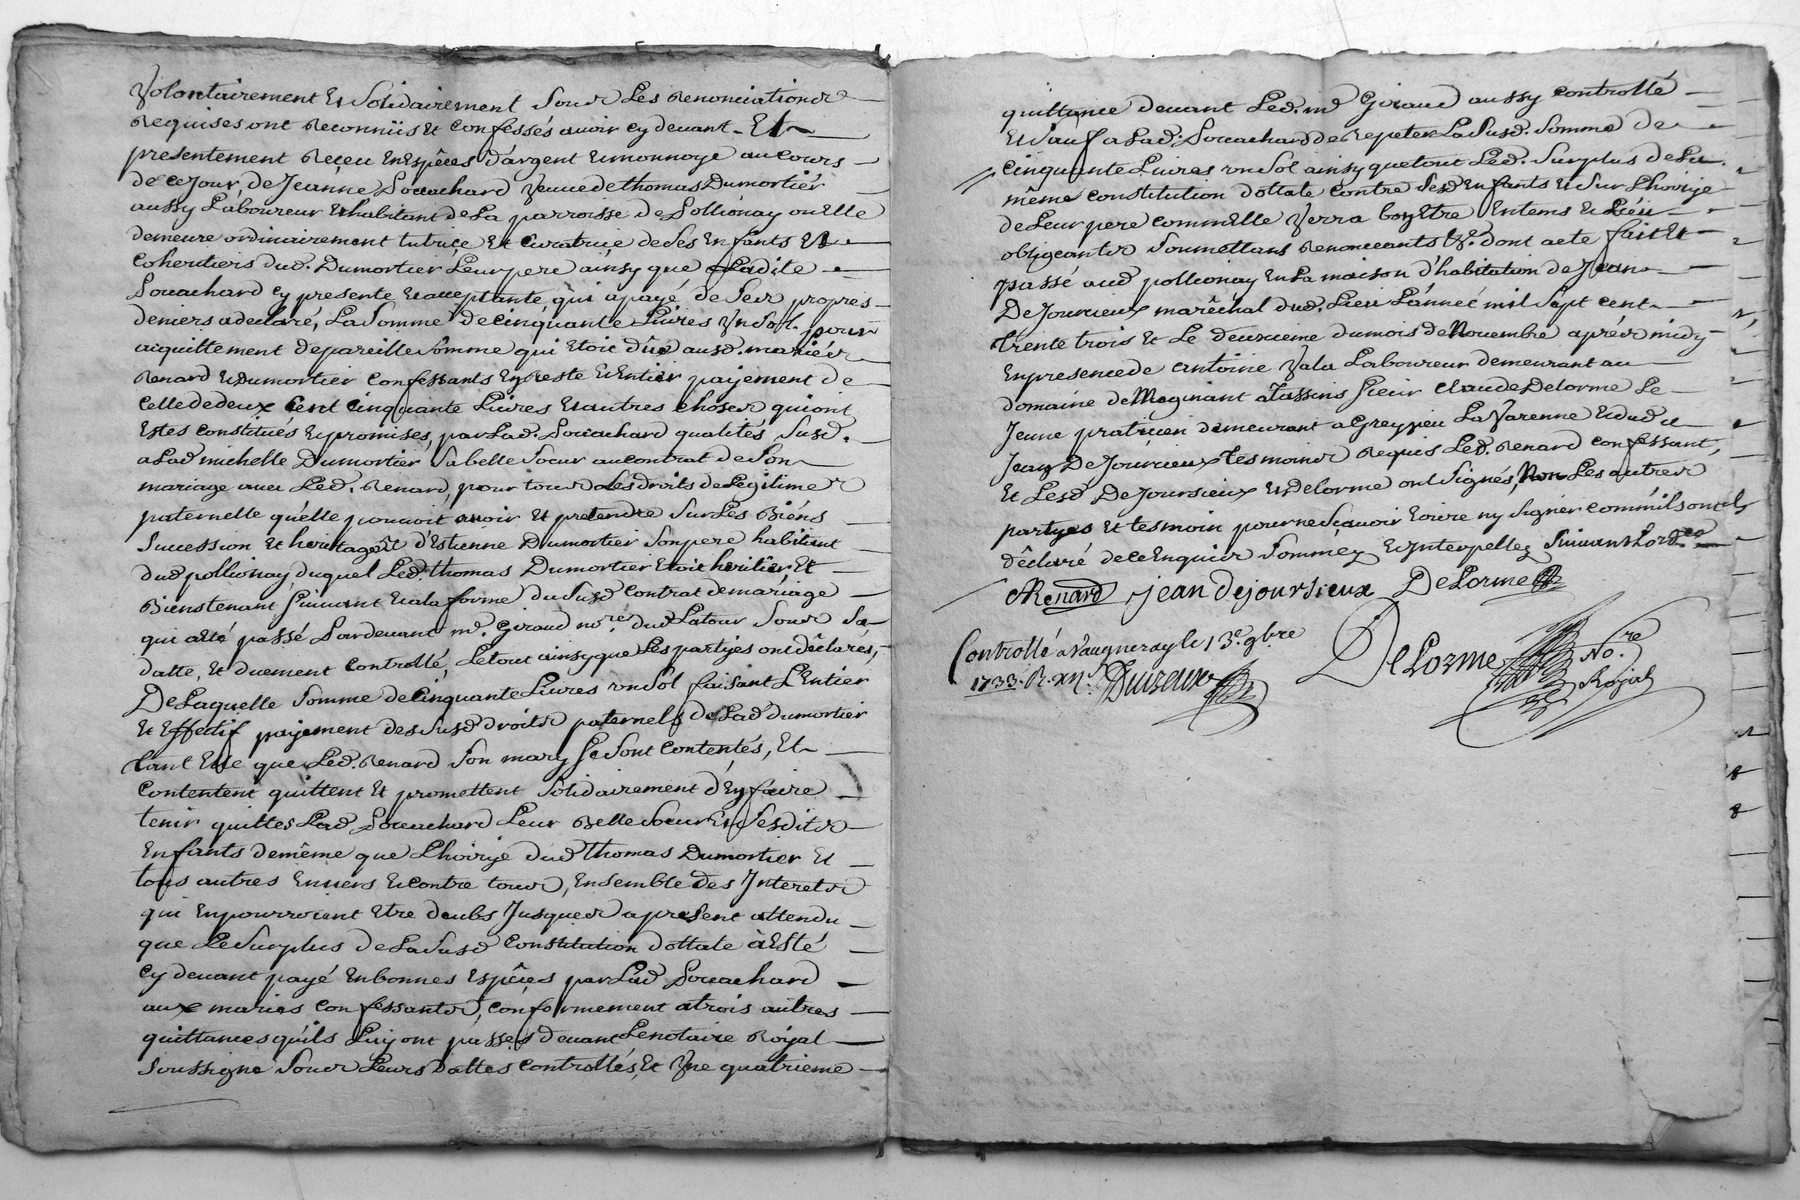 Volontairement et solidairement sous les renonciations
requises ont reconnüs et confessés avoir cy devant et
presentement reçeu en espèces d'argent et monnoye au cours
de ce jour, de Jeanne Souuchard veuve de thomas Dumortier
aussy laboureur et habitant de la parroisse de Pollionay ou elle
demeure ordinairement tutrice et curatrice de ses enfants et
coheritiers dud. Dumortier leur pere ainsy que ladite
Souuchard cy presente et acceptante qui a payé de ses propres
deniers a declaré, la somme de cinquante livres un sol pour
acquittement de pareille somme qui etoit düe ausd. mariés
Renard et Dumortier confessants en reste et entier payement de
celle de deux cent cinquante livres et autres choses qui ont
estés constitués et promises, par lad. Souuchard qualités susd.
a lad michelle Dumortier sa belle soeur au contrat de son
mariage avec led. Renard, pour tous les droits de legitime
paternelle qu'elle pouvoit avoir et pretendre sur les biens
succession et heritage d'Estienne Dumortier son pere habitant
dud pollionay duquel led. thomas Dumortier etoit heritier, et
bienstenant suivant et a la forme du susd contrat de mariage
qui a eté passé pardevant me. Giraud nore. dud Latour sous sa
datte, et duement controllé, le tout ainsy que les partyes ont déclarés,
De laquelle somme de cinquante livres un sol faisant l'entier
et effectif payement des susd droits paternels de lad dumortier
tant elle que led. Renard son mary se sont contentés, et
contentent quittent et promettent solidairement d'en faire
tenir quittes lad Souuchard leur belle soeur et sesdits
enfants de même que l'hoirye dud thomas Dumortier et
tous autres envers et contre tous, ensemble des interets
qui en pourroient etre deubs jusques a present attendu
que le surplus de la susd constitution dottale à esté
cy devant payé en bonnes espèces par lad Souuchard
aux mariés confessants, conformement a trois autres
quittances qu'ils luy ont passées devant le notaire Royal
soussigné sous leurs dattes controllés, et une quatrieme
quittance devant led. me Giraud aussy controllé
et sauf a lad. Souuchard de repeter la susd. somme de
cinquante livres un sol ainsy que tout led. surplus de la
même constitution dottale contre sesd enfants et sur l'hoirye
de leur pere comm'elle verra bon etre en tems et lieu
obligeants soumettans renonceants &a. dont acte fait et
passé aud pollionay en la maison d'habitation de Jean
De Joursieux marêchal dud. lieu l'année mil sept cent
trente trois et le deuxieme du mois de Novembre après midy
en presence de Antoine Vala laboureur demeurant au
domaine de Maginant a Tassins sieur Claude Delorme le
Jeune praticien demeurant a Grezieu la Varenne et dud
Jean De Joursieux tesmoins requis led. Renard confessant,
et lesd De Joursieux et Delorme ont signés, non les autres
partyes et tesmoin pour ne sçavoir ecrire ny signer comm'ils ont
déclaré de ce enquis sommez et interpellez suivant l'ordre
Renard jean dejoursieux Delorme
Controllé a Vaugneray le 13e. 9bre
1733. R. Duizeux
DeLorme No.re
Royal